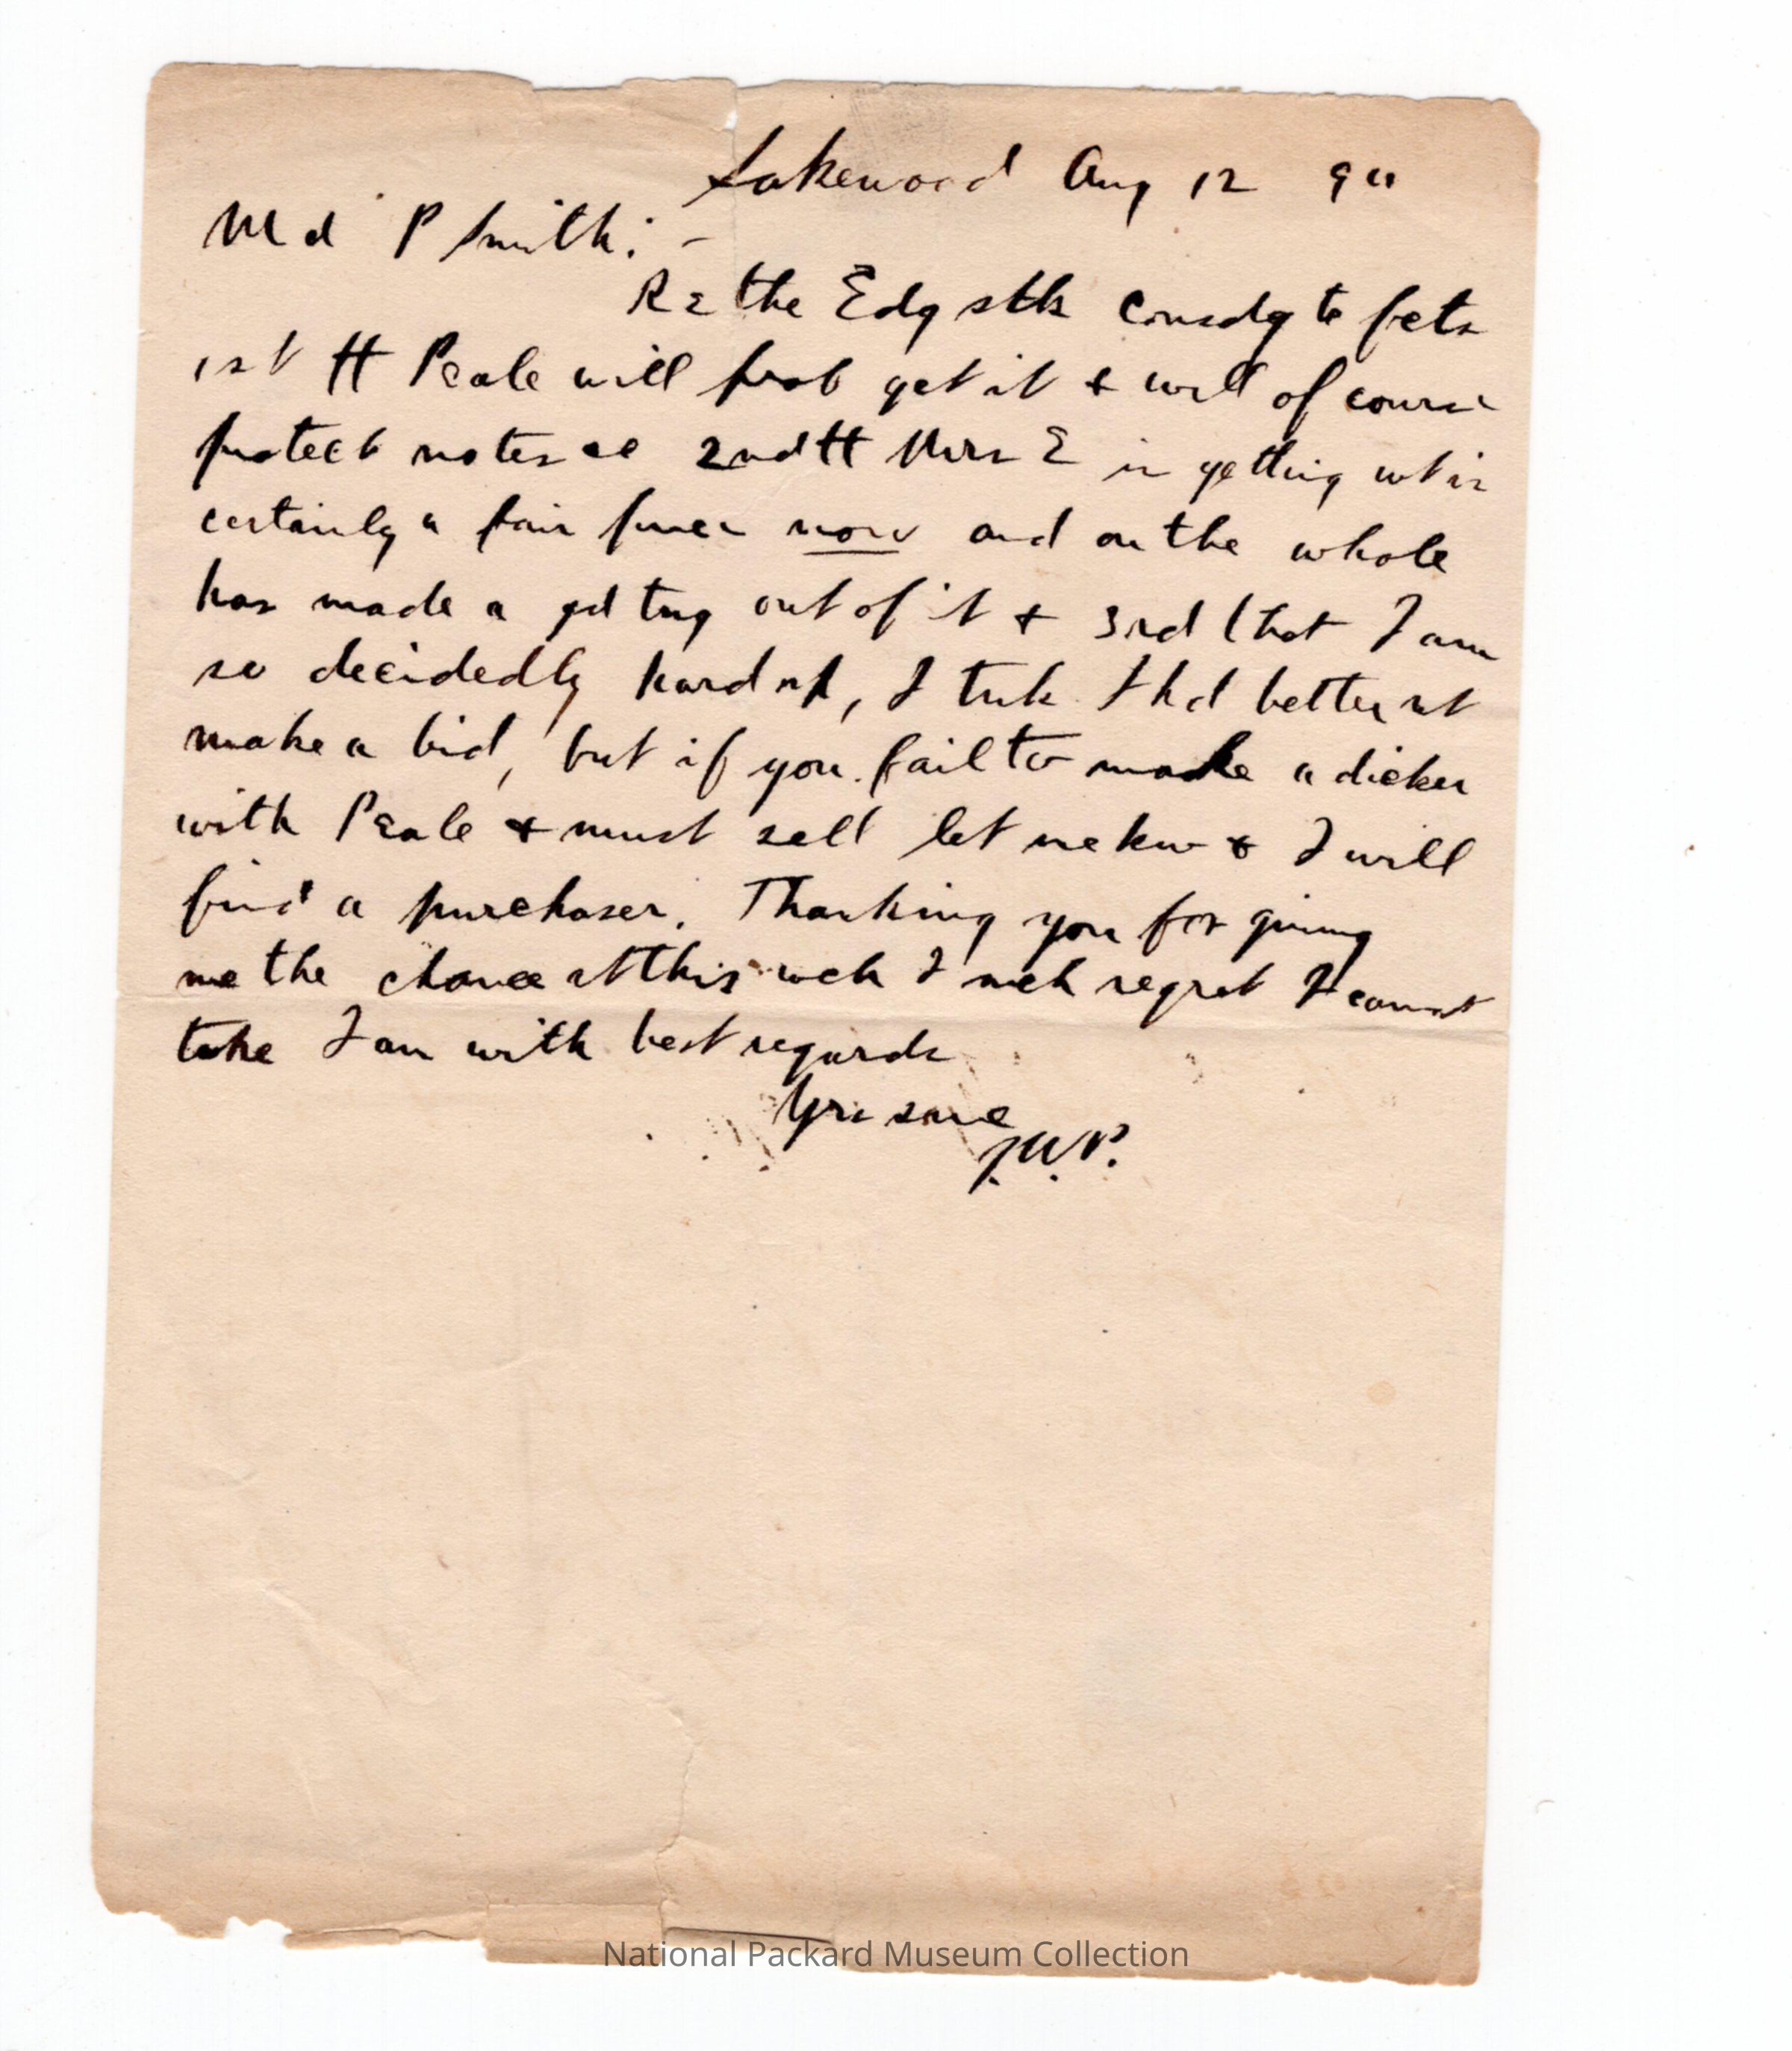 Lakewood Aug 12 90
M d P Smith: -
Re the Edg stk Consdg te fcts
1st tt Peale will prob get it & will of course
protect notes ee 2nd tt Mrs E is getting wt is
certainly a fair price now and on the whole
has made a gd tng out of it & 3rd that I am
so decidedly hard up, I tnk I hd better nt
make a bid, but if you fail to make a dicker
with Peale & must sell let me kw & I will
find a purchaser. Thanking you for giving
me the chance at this wch I mch regret I cannot
take I am with best regards
Yrs sinc
J.W.P.
National Packard Museum Collection